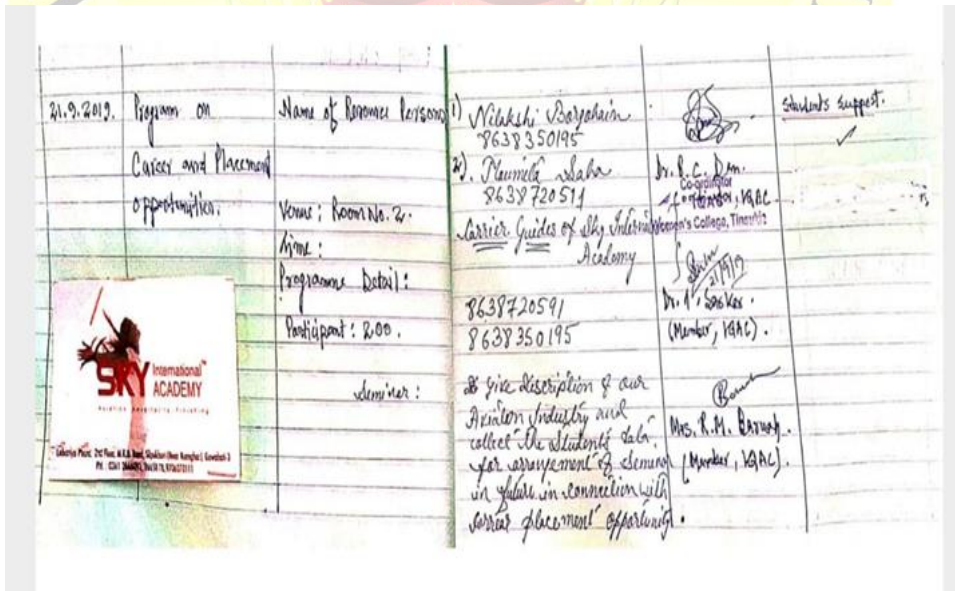 21.9.2019.
Program on
Career and Placement
opportunities.
Name of Resource Persons
Venue: Room No. 2.
Time:
Programme Detail:
Participant: 200.
Seminar:
SKY International
ACADEMY
1) Nilakshi Borgohain
8638350195
2). Saha
8638720511
Carrier Guides of Sky International
Academy
8638720591
8638350195
Give discription of our
Aviation Industry and
collect the Students data.
for arrangement of Seminar
in future in connection with
carrear placement opportunity.
Dr. R. C.
Co-ordinator
IQAC
Women's College, Tinsukia
21/9/19
Dr.
(Member, IQAC).
Mrs. R.M. Baruah.
(Member, IQAC).
Students Support.